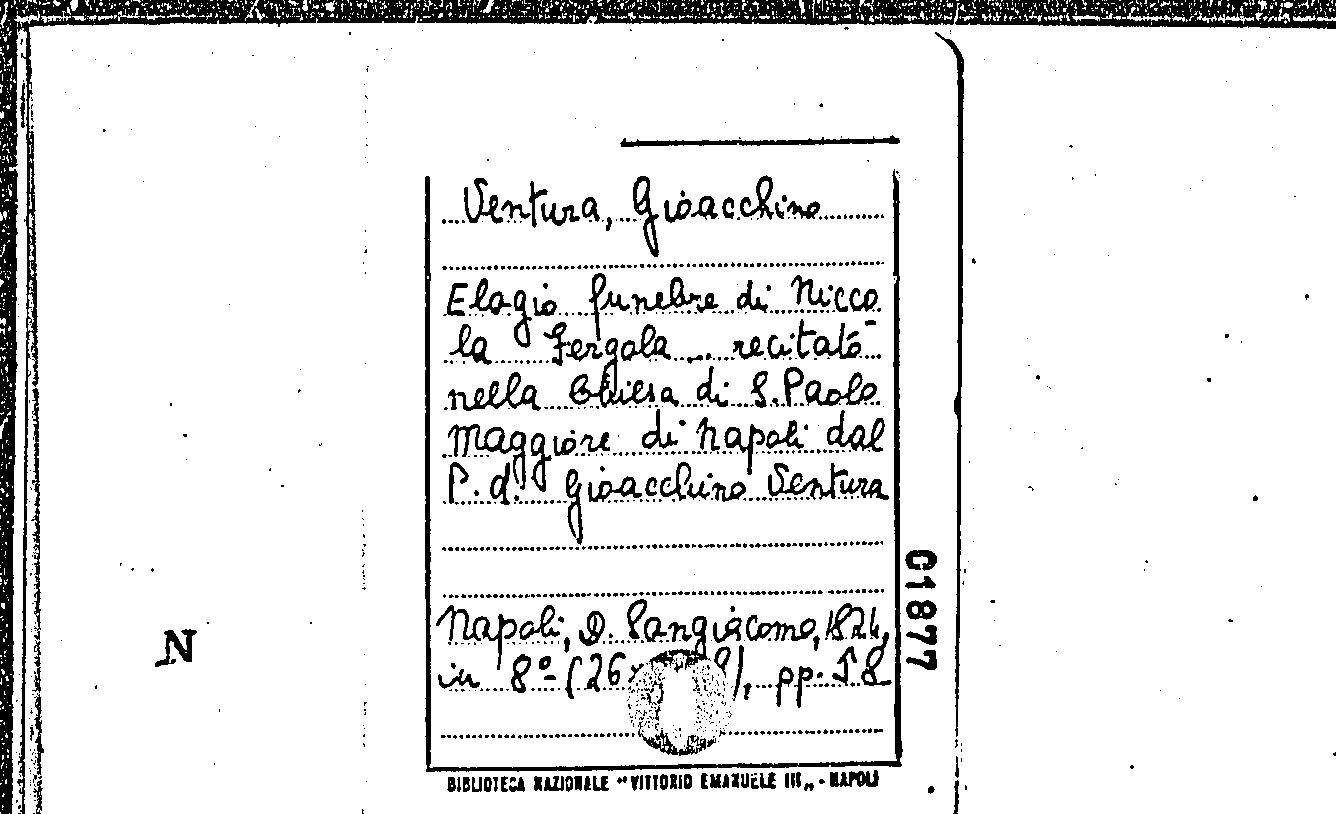 Ventura, Gioacchino
Elogio funebre di Nicco
la Fergola ... recitato
nella Chiesa di S. Paolo
Maggiore di Napoli dal
P. d. Gioacchino Ventura
Napoli, D. Sangiacomo, 1824,
in 8º (26 ), pp. 58
BIBLIOTECA NAZIONALE "VITTORIO EMANUELE III" - NAPOLI
01877
N